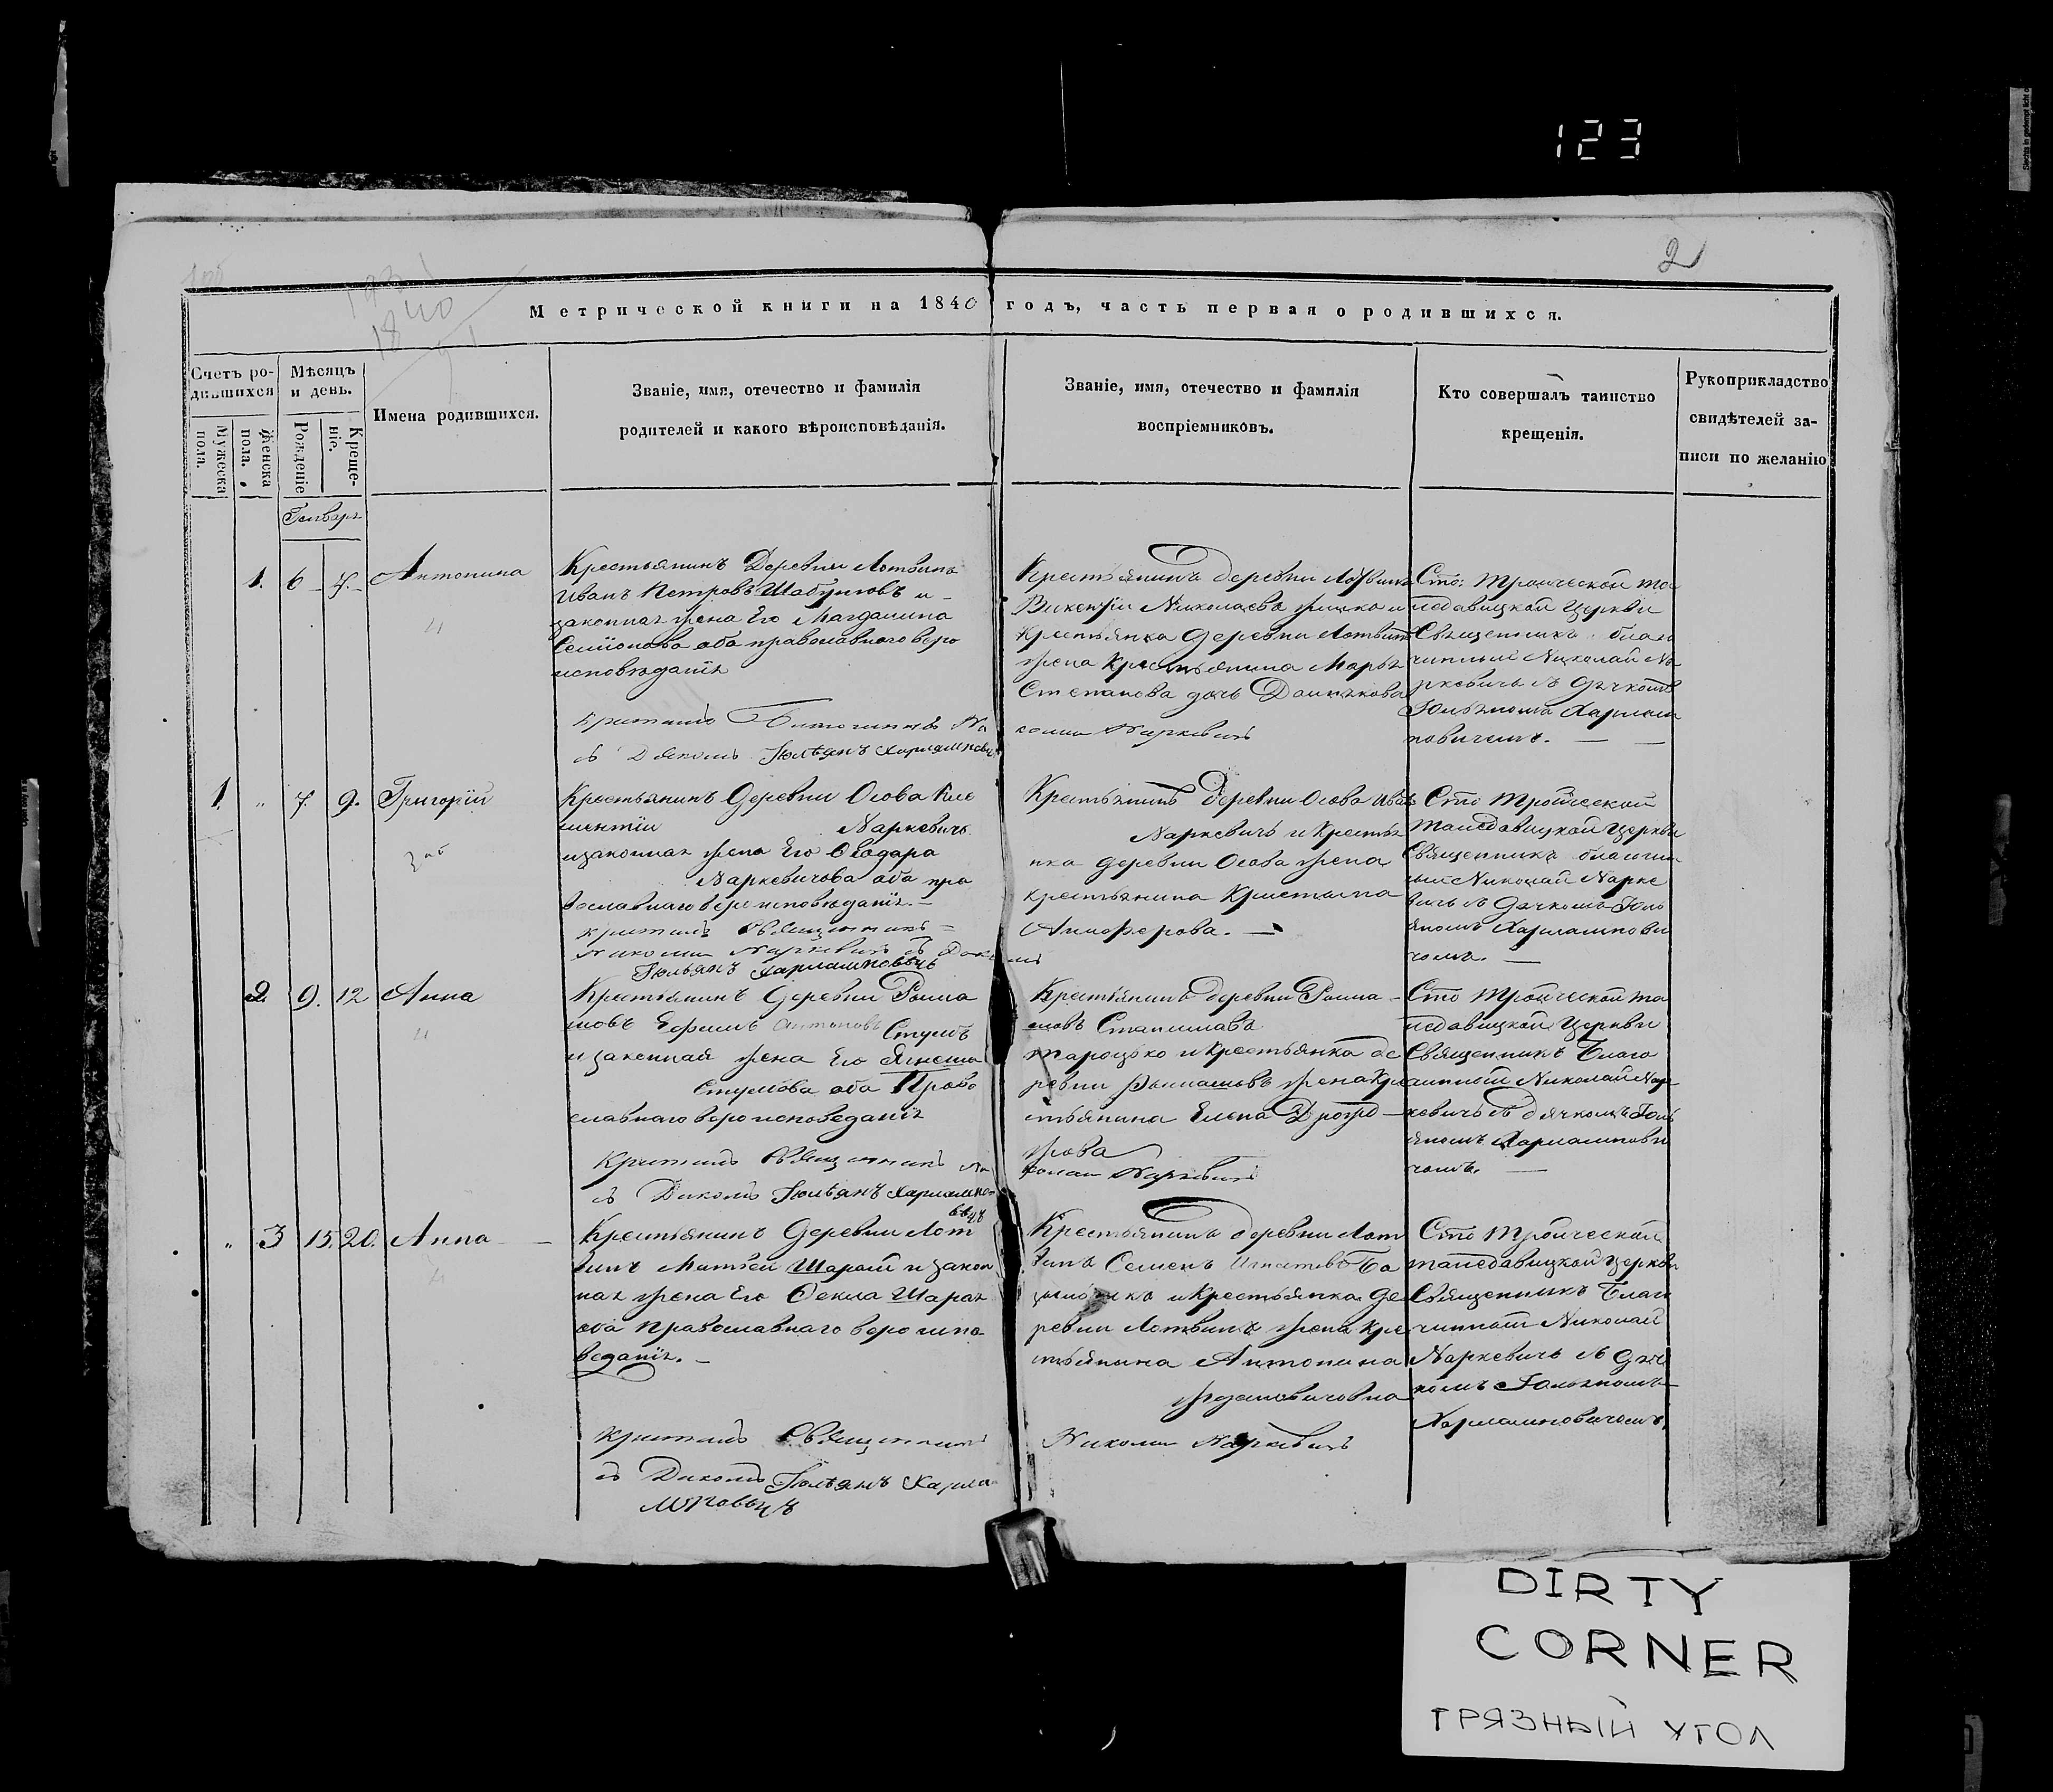 123
2
1840
Метрической книги на 1840 годъ, часть первая о родившихся.
Счетъ ро-
дившихся
Мужеска
пола.
Женска
пола.
Мѣсяцъ
и день.
Рожденіе
Креще-
ніе.
Имена родившихся.
Званіе, имя, отечество и фамилія
родителей и какого вѣроисповѣданія.
Званіе, имя, отечество и фамилія
воспріемниковъ.
Кто совершалъ таинство
крещенія.
Рукоприкладство
свидѣтелей за-
писи по желанію
Генваря
1. 6 7. Антонина
Крестьянинъ Деревни Лотвинъ
Иванъ Петровъ Шабуневъ и
законная жена Его Магдалина
Семіонова оба православнаго веро
исповѣданія
съ Дякомъ Юльянъ Харламповичъ
Крестьянинъ деревни Лотвинъ
Викентіи Николаевъ и
Крестьянка деревни Лотвинъ
жена Крестьянина Марья
Степанова дочь
колаи Наркевичъ
Сто: Троической та
недавицкой Церкви
Священникъ благо
чинный Николай На
ркевичь съ Дячкомъ
Юльяномъ Харлам
повичемъ.
1. " 7. 9. Григорій
Крестьянинъ Деревни Осова Кле
ментіи Наркевичь
и законная жена Его Ѳеодора
Наркевичова оба пра
вославнаго вероисповѣданія.
крестилъ Священникъ
Николаи Наркевичъ съ Дякомъ
Юльянъ Харламповичъ
Крестьянинъ деревни Осова Иванъ
Наркевичь и Крестья
нка деревни Осова жена
крестьянина Кристина
Анцоферова.
Сто Троической
танедавицкой Церкви
Священникъ благочин
ный Николай Нарке
вичь съ Дячкомъ Юль
яномъ Харлампови
чомъ.
2. 9. 12 Анна
Крестьянинъ Деревни Рома
шовъ Ефимъ Антоновъ Стумъ
и законная жена Его Агнеша
Стумова оба Право
славнаго вероисповеданія
Крестилъ Священникъ Ни
съ Дякомъ Юльянъ Харлампо
вичъ
Крестьянинъ деревни Рома
шовъ Станиславъ
Тароцько и Крестьянка де
ревни Ромашовъ жена Кре
стьянина Елена Дрозд
жова
колаи Наркевичъ
Сто Троической та
недавицкой Церкви
Священникъ Благо
чинный Николай Нар
кевичь съ дячкомъ Юль
яномъ Харлампови
чомъ.
" 3 15. 20. Анна
Крестьянинъ Деревни Лот
винъ Матвей Шарай и закон
ная жена Его Ѳекла Шарая
оба Православнаго вероиспо
веданія.
Крестилъ Священникъ
съ Дякомъ Юльянъ Харла
мповичъ
Крестьянинъ деревни Лот
винъ Семенъ Игнатевъ Ба
и Крестьянка де
ревни Лотвинъ жена Кре
стьянина Антонина
Николаи Наркевичъ
Сто Троической
танедавицкой Церкви
Священникъ Благо
чинный Николай
Наркевичь съ Дяч
комъ Юльяномъ
Харламповичомъ.
DIRTY
CORNER
ГРЯЗНЫЙ УГОЛ